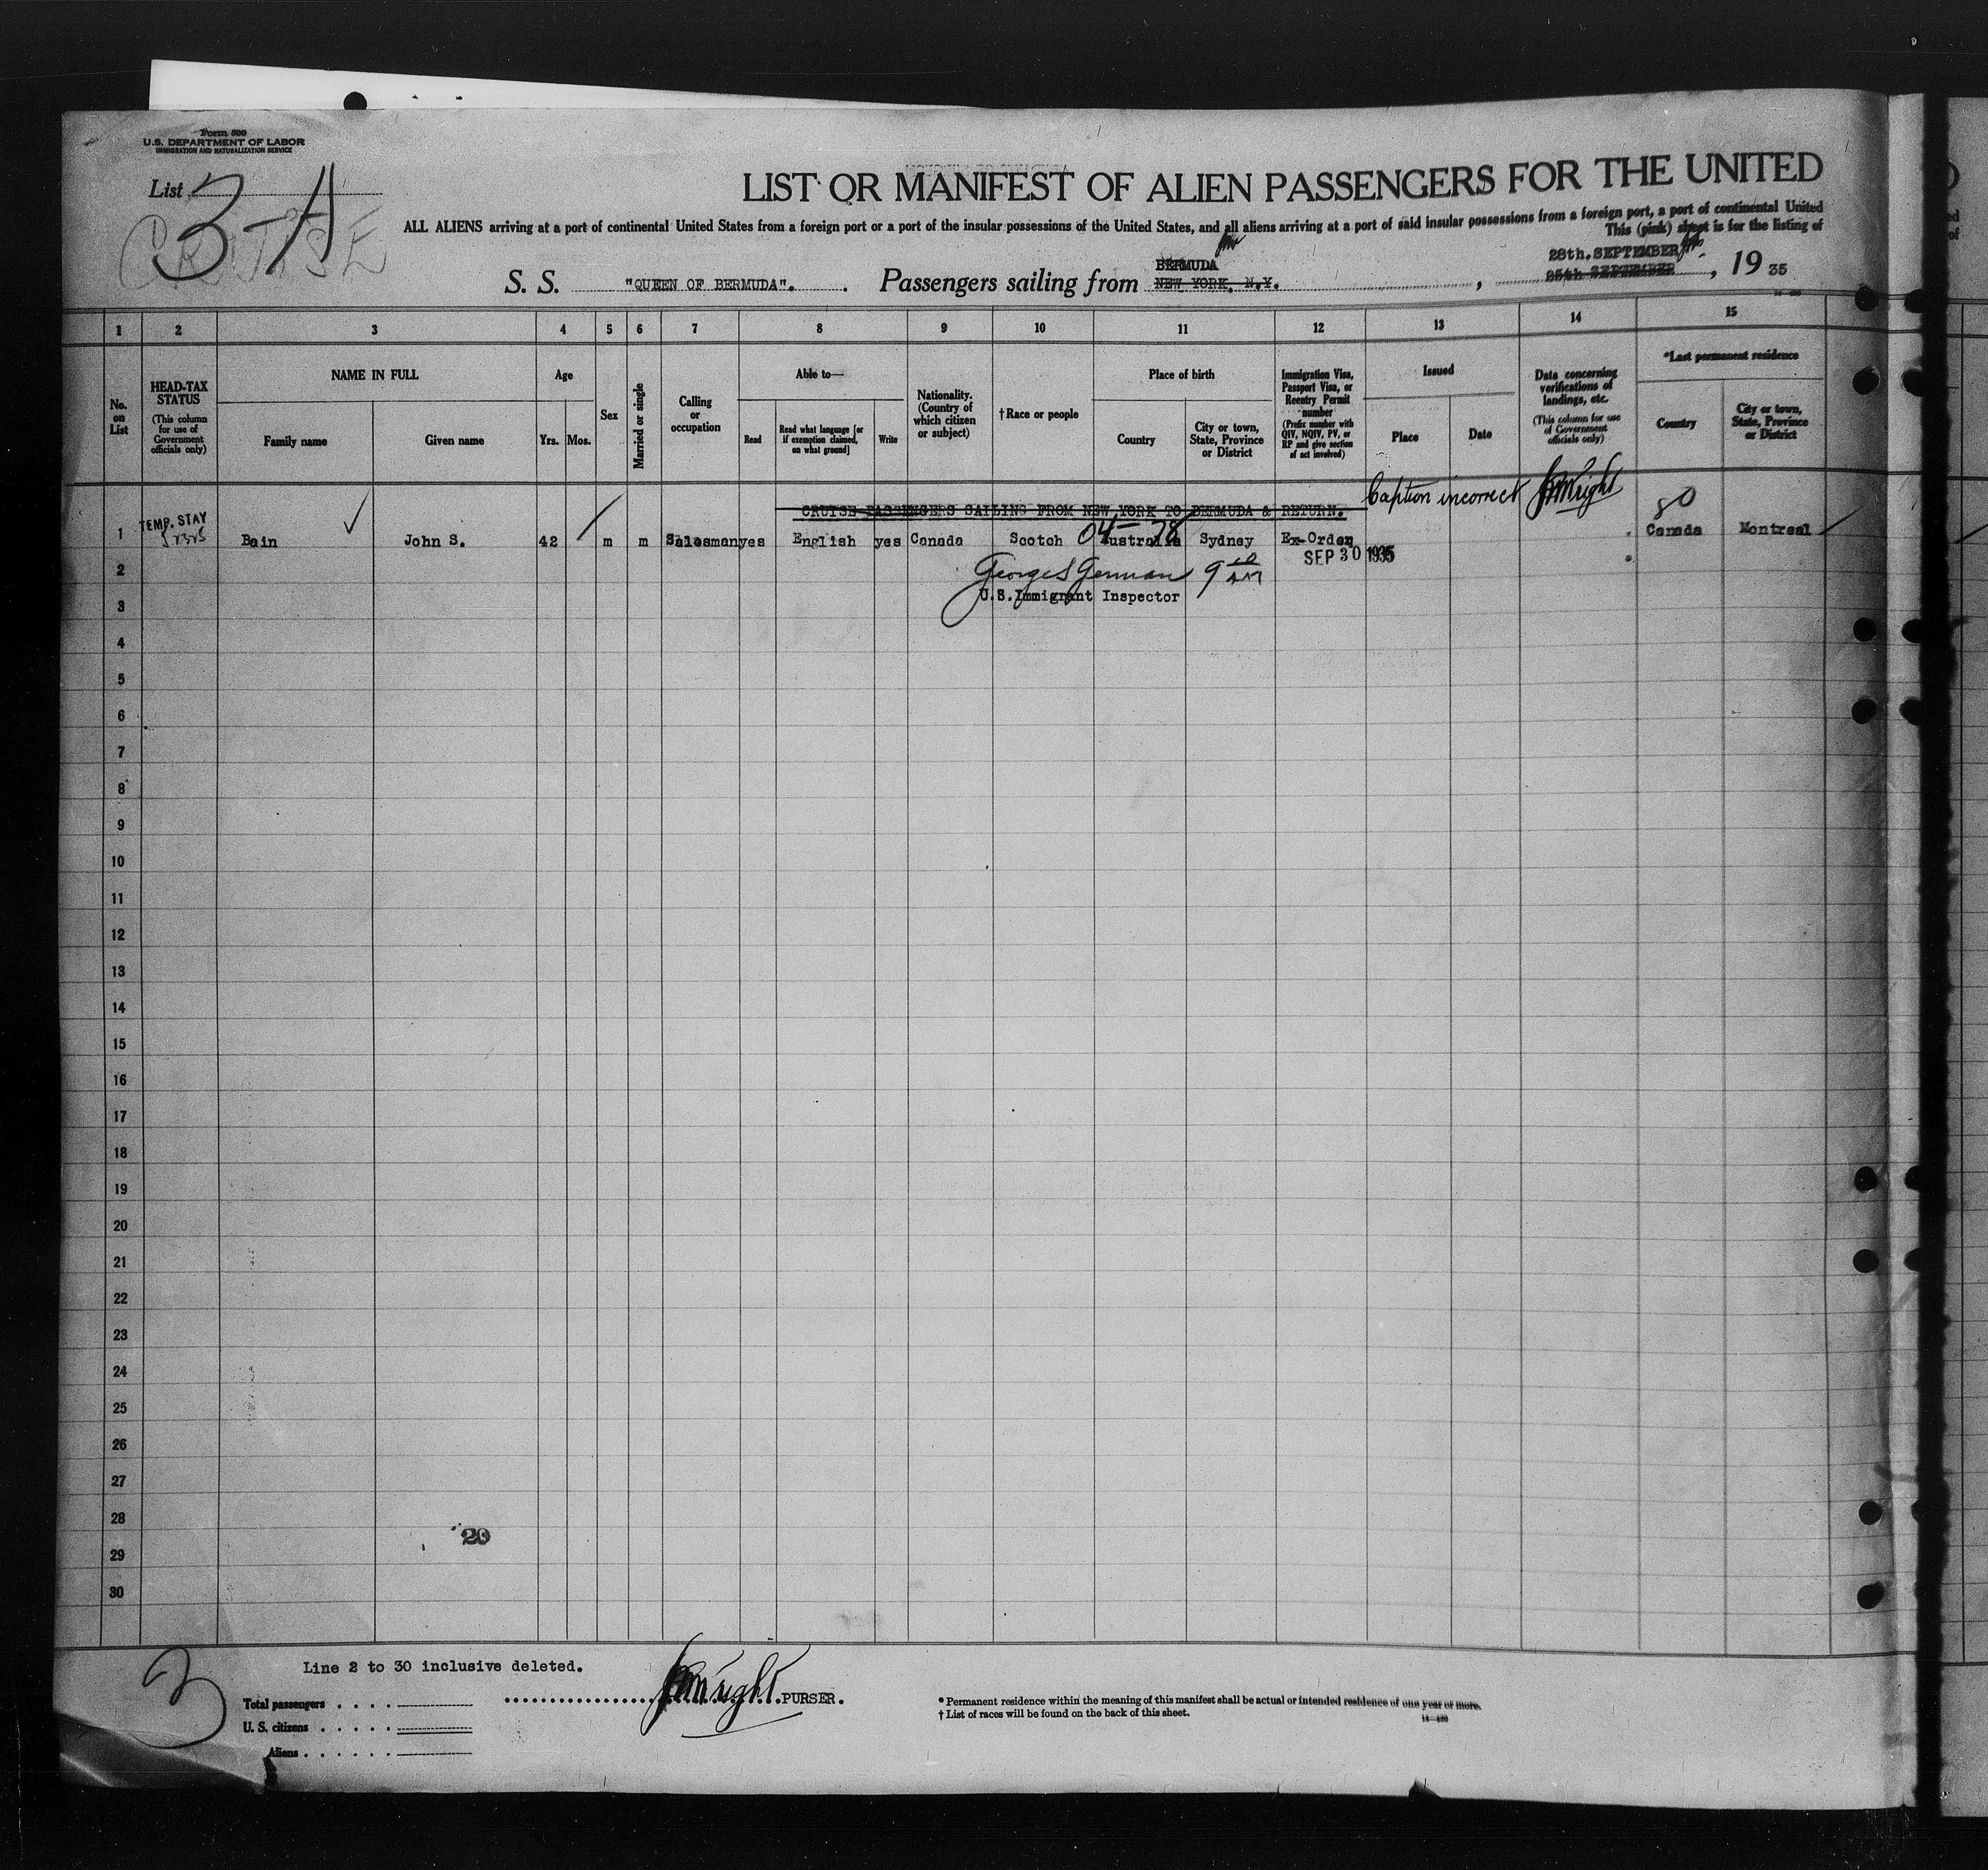 Form 500
U.S. DEPARTMENT OF LABOR
IMMIGRATION AND NATURALIZATION SERVICE
List 3-A
CRUISE
LIST OR MANIFEST OF ALIEN PASSENGERS FOR THE UNITED
ALL ALIENS arriving at a port of continental United States from a foreign port or a port of the insular possessions of the United States, and all aliens arriving at a port of said insular possessions from a foreign port, a port of continental United
This (pink) sheet is for the listing of
BERMUDA 28th.SEPTEMBER
S. S. "QUEEN OF BERMUDA". Passengers sailing from NEW YORK, N.Y. , 25th SEPTEMBER , 19 35
1 2 3 4 5 6 7 8 9 10 11 12 13 14 15
No. on List
HEAD-TAX STATUS
(This column for use of Government officials only)
NAME IN FULL
Family name
Given name
Age
Yrs. Mos.
Sex
Married or single
Calling or occupation
Able to—
Read
Read what language [or if exemption claimed, on what ground]
Write
Nationality. (Country of which citizen or subject)
†Race or people
Place of birth
Country
City or town, State, Province or District
Immigration Visa, Passport Visa, or Reentry Permit number
(Prefix number with QIV, NQIV, PV, or RP and give section of act involved)
Issued
Place
Date
Data concerning verifications of landings, etc.
(This column for use of Government officials only)
*Last permanent residence
Country
City or town, State, Province or District
CRUISE PASSENGERS SAILING FROM NEW YORK TO BERMUDA & RETURN. Caption incorrect JMWright
80
TEMP. STAY
1 Bain John S. 42 m m Salesman yes English yes Canada Scotch Australia Sydney Ex-Order Canada Montreal
04-78
SEP 30 1935
2 George S German 9 AM
3 U.S.Immigrant Inspector
4
5
6
7
8
9
10
11
12
13
14
15
16
17
18
19
20
21
22
23
24
25
26
27
28
20
29
30
3
Line 2 to 30 inclusive deleted.
Total passengers
U. S. citizens
Aliens
JMWright PURSER.
* Permanent residence within the meaning of this manifest shall be actual or intended residence of one year or more.
† List of races will be found on the back of this sheet.